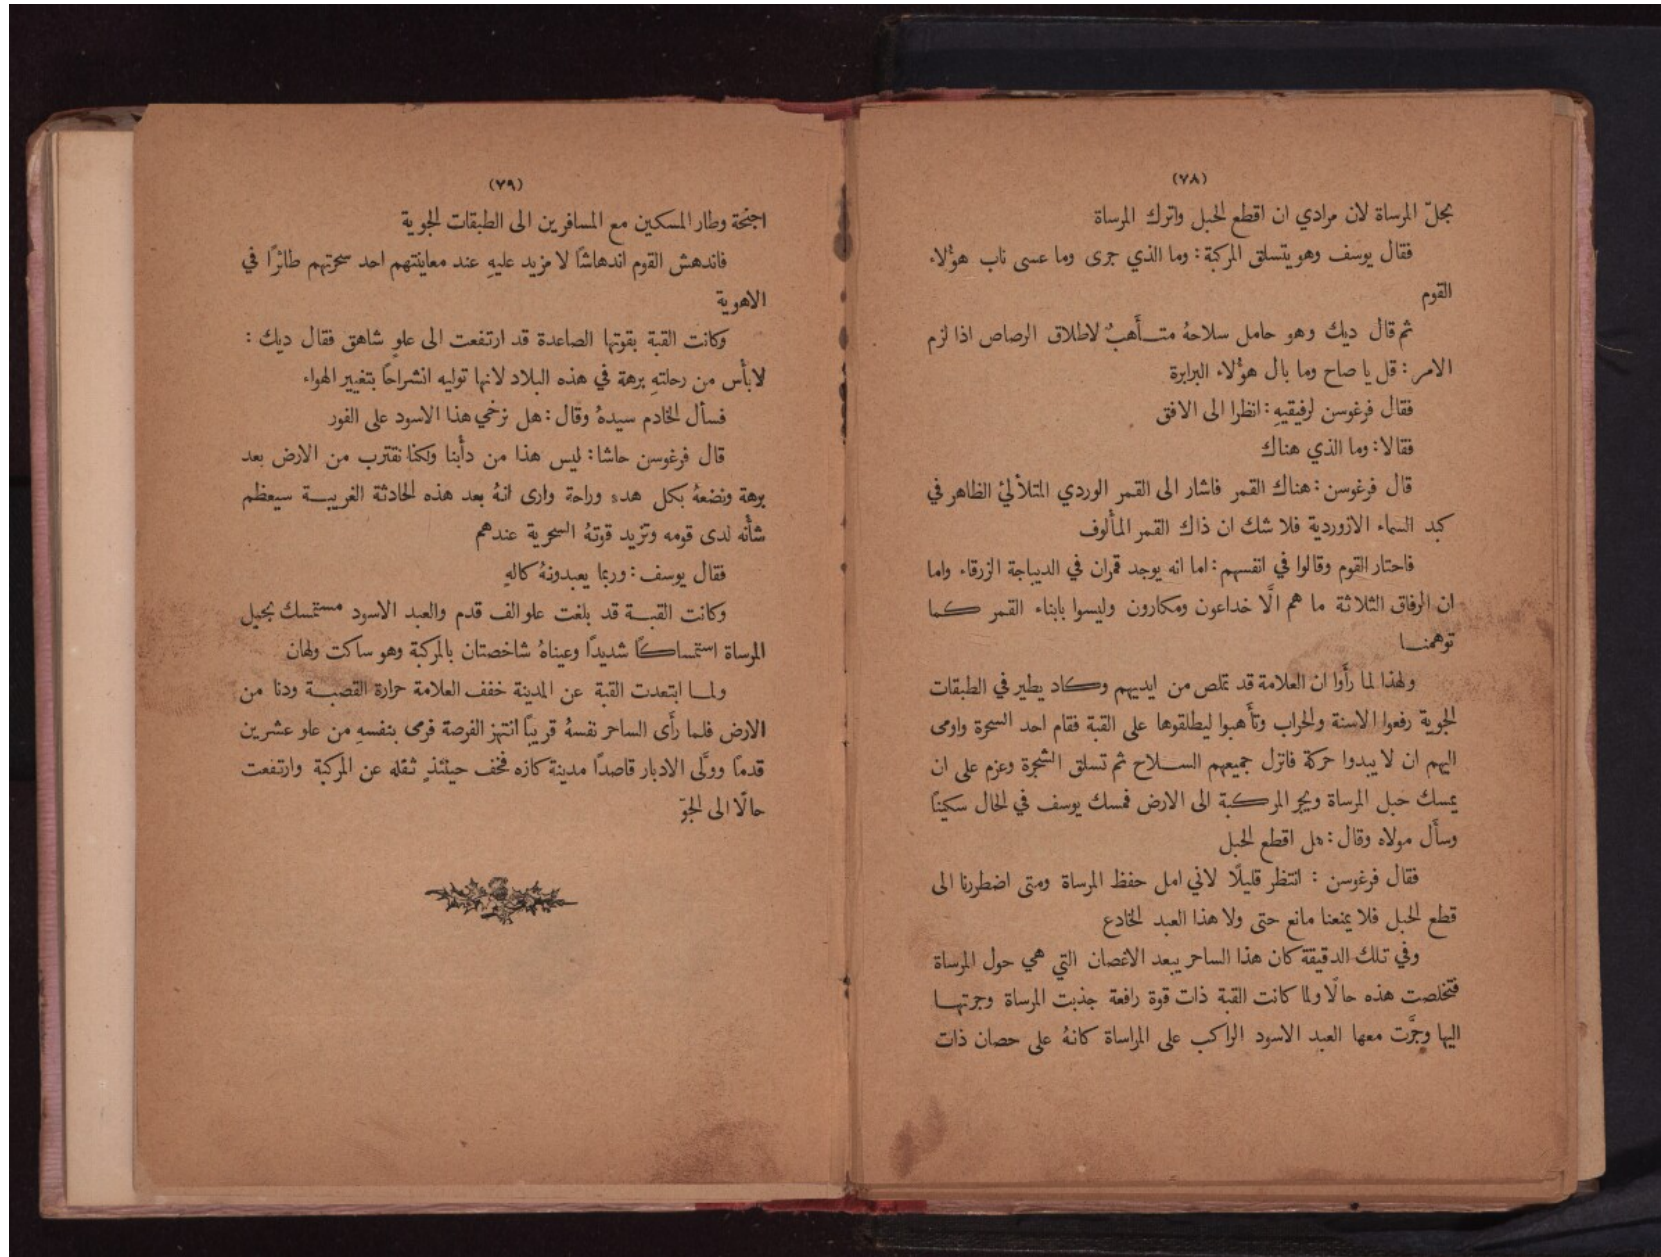 (٧٨)
بحلّ المرساة لان مرادي ان اقطع الحبل واترك المرساة
فقال يوسف وهو يتسلق المركبة : وما الذي جرى وما عسى ناب هؤلاء
القوم
ثم قال ديك وهو حامل سلاحهُ متــأهبٌ لاطلاق الرصاص اذا لزم
الامر : قل يا صاح وما بال هؤلاء البرابرة
فقال فرغوسن لرفيقيهِ : انظرا الى الافق
فقالا : وما الذي هناك
قال فرغوسن : هناك القمر فاشار الى القمر الوردي المتلألئ الظاهر في
كبد السماء الازوردية فلا شك ان ذاك القمر المألوف
فاحتار القوم وقالوا في انفسهم : اما انه يوجد قمران في الديباجة الزرقاء واما
ان الرفاق الثلاثة ما هم الَّا خداعون ومكارون وليسوا بابناء القمر كــما
توهمنــا
ولهذا لما رأَوا ان العلامة قد تملص من ايديهم وكاد يطير في الطبقات
الجوية رفعوا الاسنة والحراب وتأهبوا ليطلقوها على القبة فقام احد السحرة واومى
اليهم ان لا يبدوا حركة فانزل جميعهم الســلاح ثم تسلق الشجرة وعزم على ان
يمسك حبل المرساة ويجر المركبة الى الارض فمسك يوسف في الحال سكينًا
وسأَل مولاه وقال : هل اقطع الحبل
فقال فرغوسن : انتظر قليلًا لاني امل حفظ المرساة ومتى اضطررنا الى
قطع الحبل فلا يمنعنا مانع حتى ولا هذا العبد الخادع
وفي تلك الدقيقة كان هذا الساحر يبعد الاغصان التي هي حول المرساة
فتخلصت هذه حالًا ولما كانت القبة ذات قوة رافعة جذبت المرساة وجرتهــا
اليها وجرَّت معها العبد الاسود الراكب على المراساة كانهُ على حصان ذات
(٧٩)
اجنحة وطار المسكين مع المسافرين الى الطبقات الجوية
فاندهش القوم اندهاشًا لا مزيد عليهِ عند معاينتهم احد سحرتهم طائرًا في
الاهوية
وكانت القبة بقوتها الصاعدة قد ارتفعت الى علوٍ شاهق فقال ديك :
لا بأس من رحلتهِ برهة في هذه البلاد لانها توليه انشراحًا بتغيير الهواء
فسأل الخادم سيدهُ وقال : هل نرخي هذا الاسود على الفور
قال فرغوسن حاشا : ليس هذا من دأبنا ولكننا نقترب من الارض بعد
برهة ونضعهُ بكل هدءٍ وراحة وارى انهُ بعد هذه الحادثة الغريبــة سيعظم
شأنه لدى قومه وتزيد قوتهُ السحرية عندهم
فقال يوسف : وربما يعبدونهُ كالهٍ
وكانت القبــة قد بلغت علو الف قدم والعبد الاسود مستمسك بحبل
المرساة استمساكًا شديدًا وعيناهُ شاخصتان بالمركبة وهو ساكت ولهان
ولمــا ابتعدت القبة عن المدينة خفف العلامة حرارة القصبــة ودنا من
الارض فلما رأَى الساحر نفسهُ قريبًا انتهز الفرصة فرمى بنفسهِ من علو عشرين
قدمًا وولَّى الادبار قاصدًا مدينة كازه فخف حينئذٍ ثقله عن المركبة وارتفعت
حالًا الى الجوّ